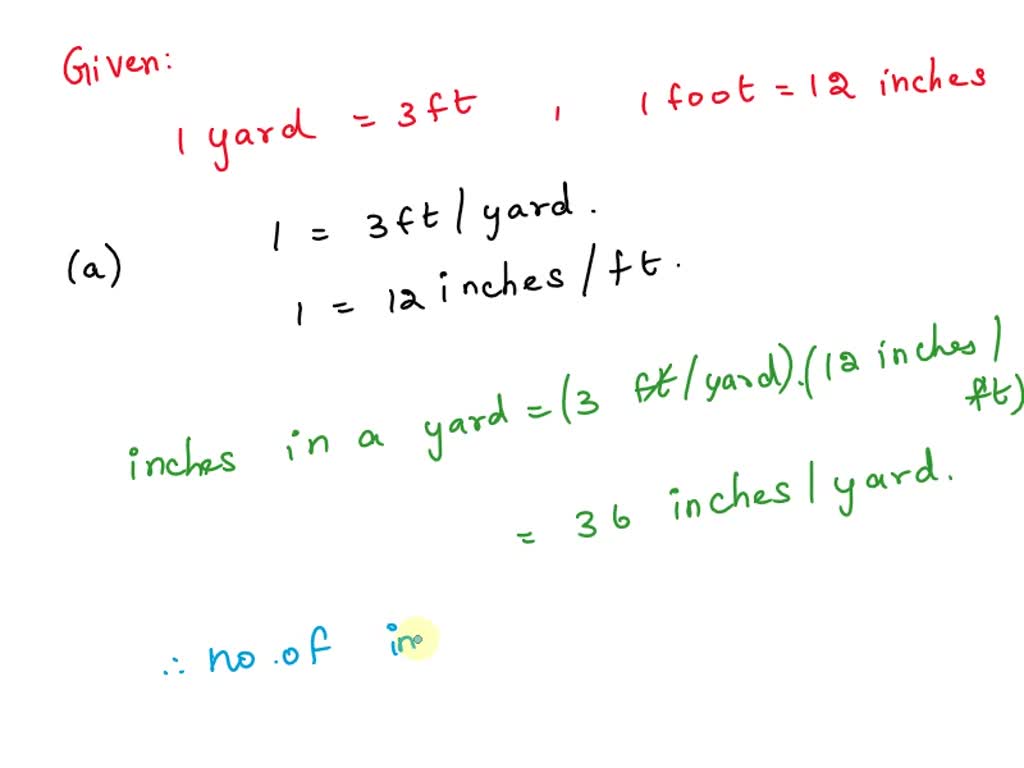 Given:
1 yard = 3ft , 1 foot = 12 inches
(a) 1 = 3ft / yard.
1 = 12 inches / ft.
inches in a yard = (3 ft / yard).(12 inches /
ft)
= 36 inches / yard.
∴ no. of in